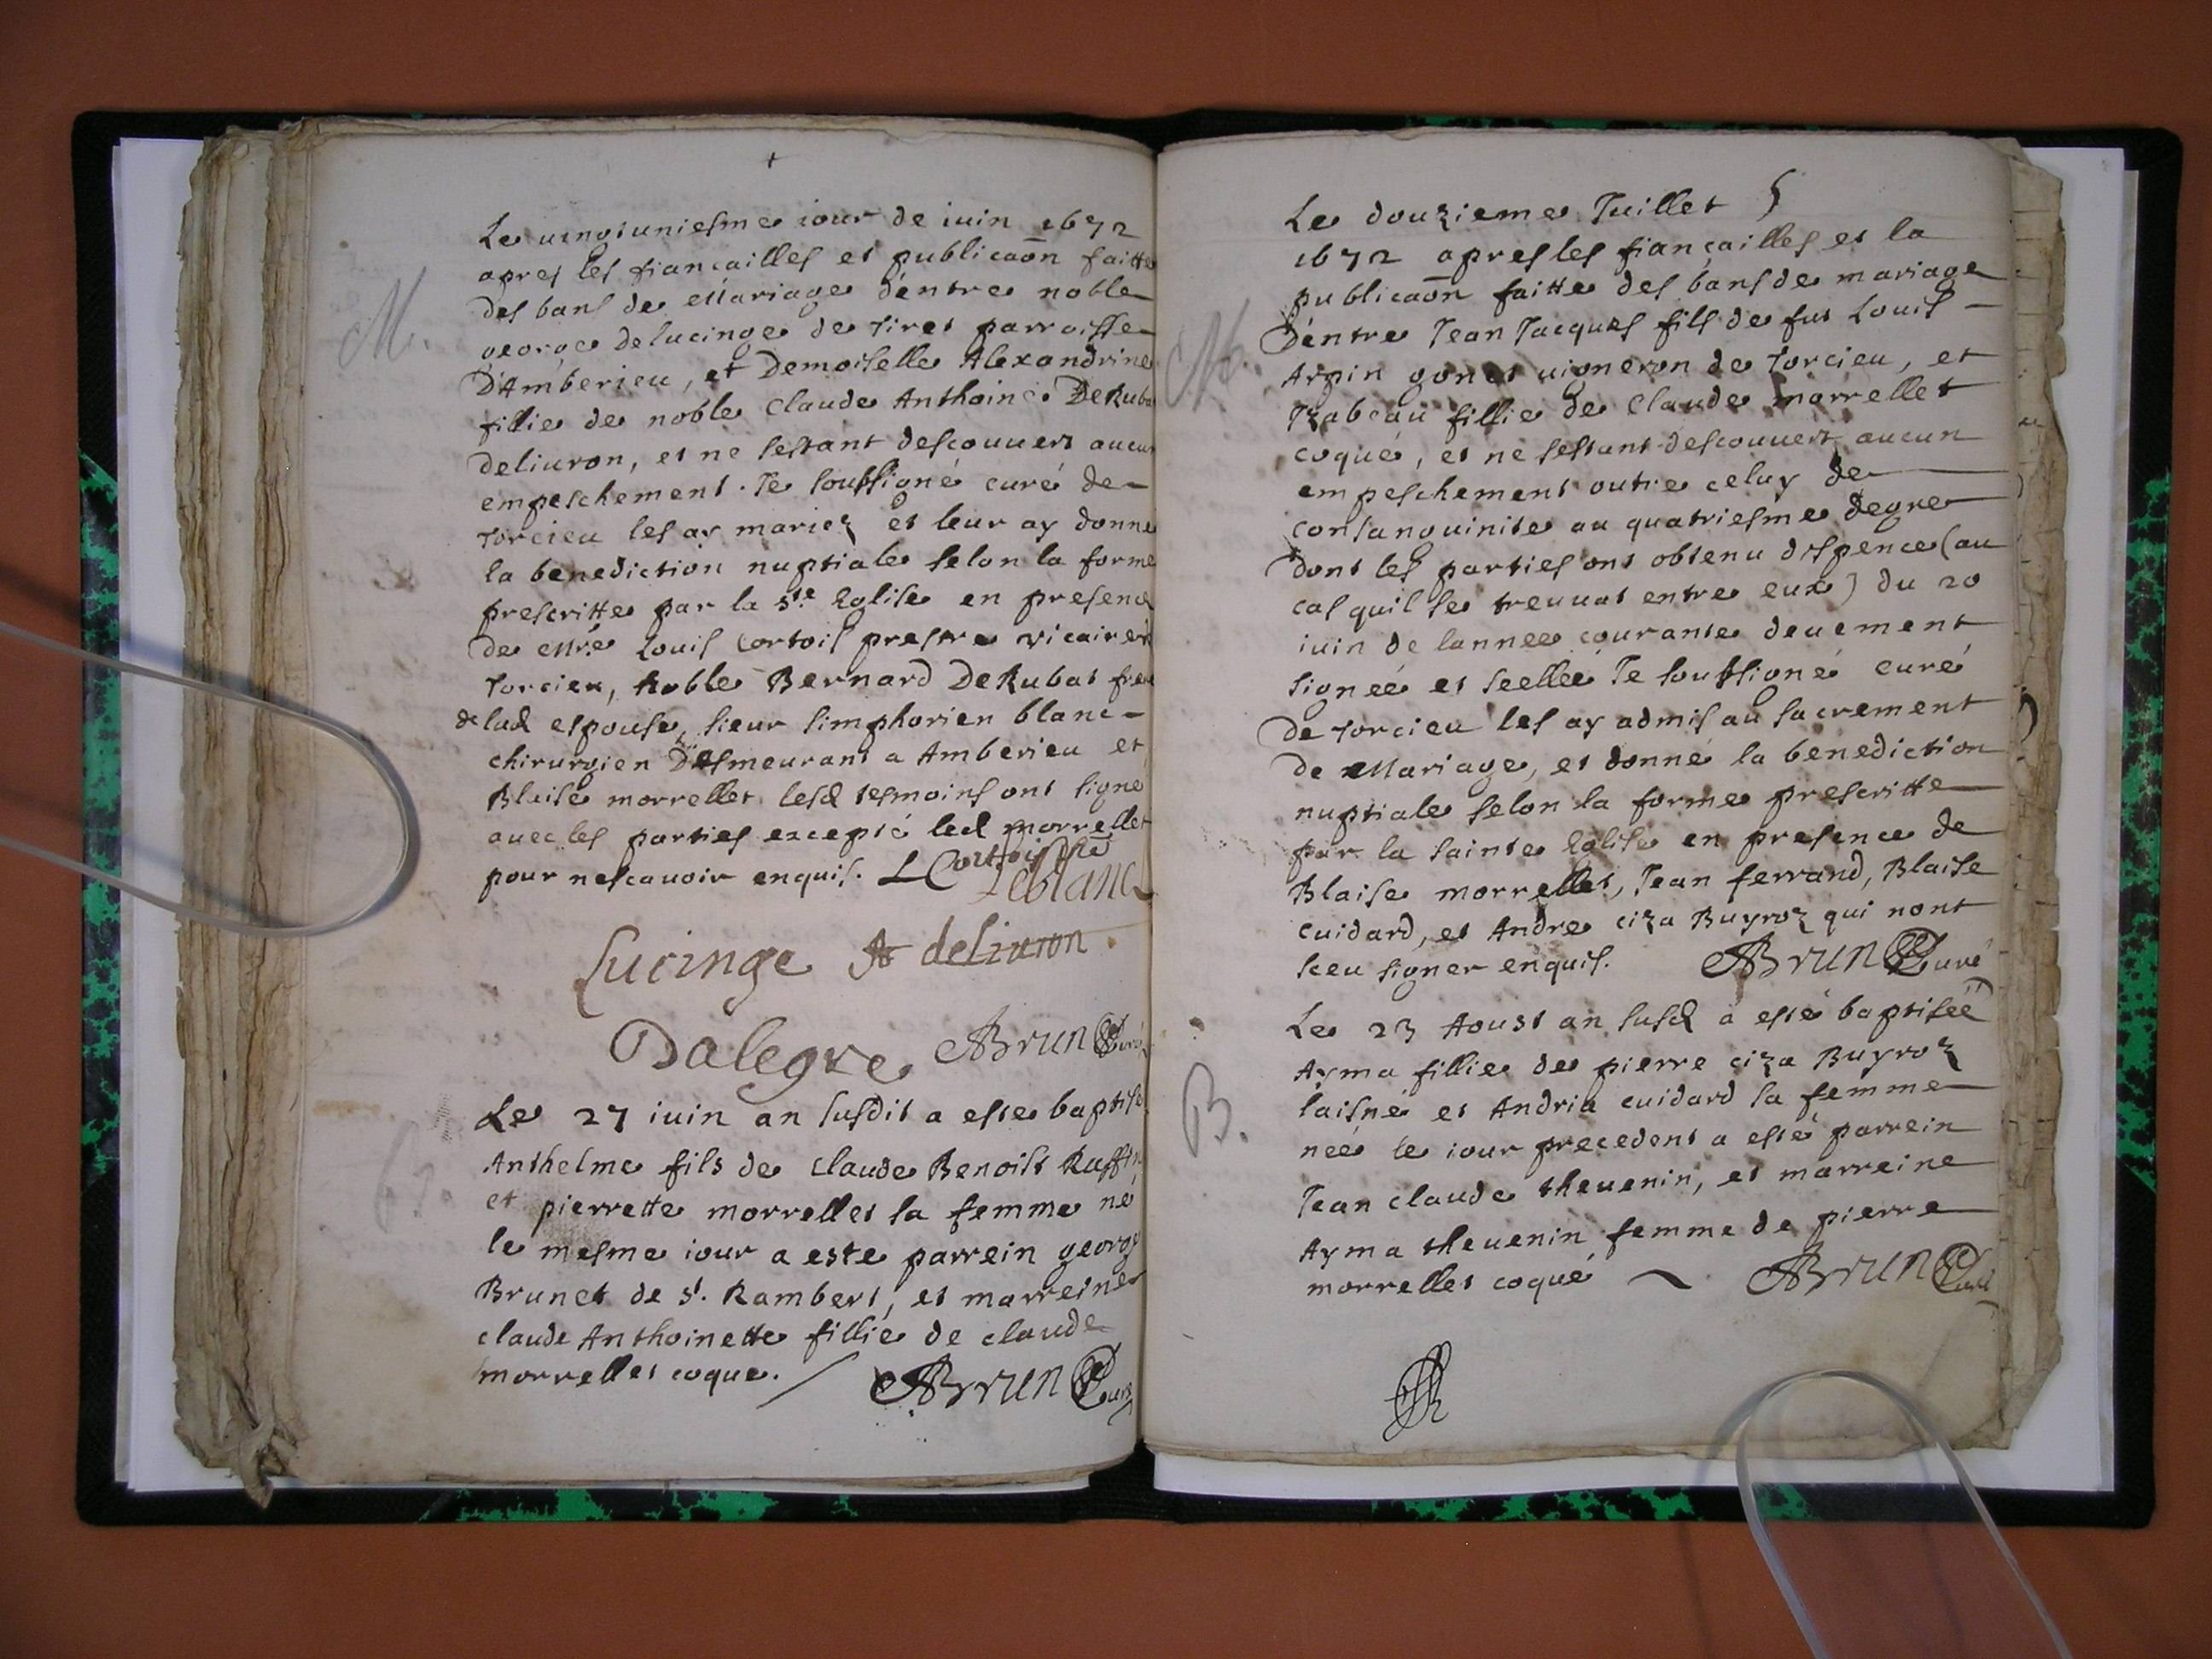 Le vingtuniesme iour de iuin 1672
apres les fiancailles et publicaõn faitte
des bans de Mariage d'entre noble
george delucinge de tiret parroisse
D'Amberieu, et Demoiselle Alexandrine
fillie de noble claude Anthoine DeRuba
deliuron, et ne sestant descouuert aucun
empeschement. Je soubsigné curé de
torcieu les ay mariez et leur ay donne
la benediction nuptiale selon la forme
prescritte par la ste Eglise en presence
de Mre Louis Cortois prestre vicaire
torcieu, noble Bernard DeRubat frere
de lad espouse, sieur simphorien blanc
chirurgien Desmeurant a Amberieu et
Blaise morrellet lesd tesmoins ont signé
auec les parties excepté led morrellet
pour nescauoir enquis. L Cortois pbre
Leblanc
Lucinge A deliuron
Dalegre ABrun Curé
Le 27 iuin an susdit a este baptisé
Anthelme fils de claude Benoist Ruffin
et pierrette morrellet sa femme né
le mesme iour a este parrein george
Brunet de st. Rambert, et marreine
claude Anthoinette fillie de claude
morrellet coque. / ABrun Curé
M.
B.
Le douzieme Juillet 5
1672 apres les fiançailles et la
publicaõn faitte des bans de mariage
D'entre Jean Jacques fils de fut Louis
Arpin gonet uigneron de torcieu, et
Izabeau fillie de Claude morrellet
coqué, et ne sestant descouuert aucun
empeschement outre celuy de
consanguinite au quatriesme degre
dont les parties ont obtenu dispence (au
cas quil se treuuat entre eux) du 20
iuin de lannee courante deuement
signée et seellée Je soubsigné curé
De torcieu les ay admis au sacrement
De Mariage, et donné la benediction
nuptiale selon la forme prescritte
par la sainte Eglise en presence de
Blaise morrellet, Jean ferrand, Blaise
cuidard, et Andre ciza Buyroz qui nont
sceu signer enquis. ABrun Curé
Le 23 Aoust an susd a esté baptiséé
Ayma fillie de pierre ciza Buyroz
laisné et Andria cuidard sa femme
neé le iour precedent a esté parrein
Jean claude theuenin, et marreine
Ayma theuenin femme de pierre
morrellet coqué ~ ABrun Curé
M.
B.